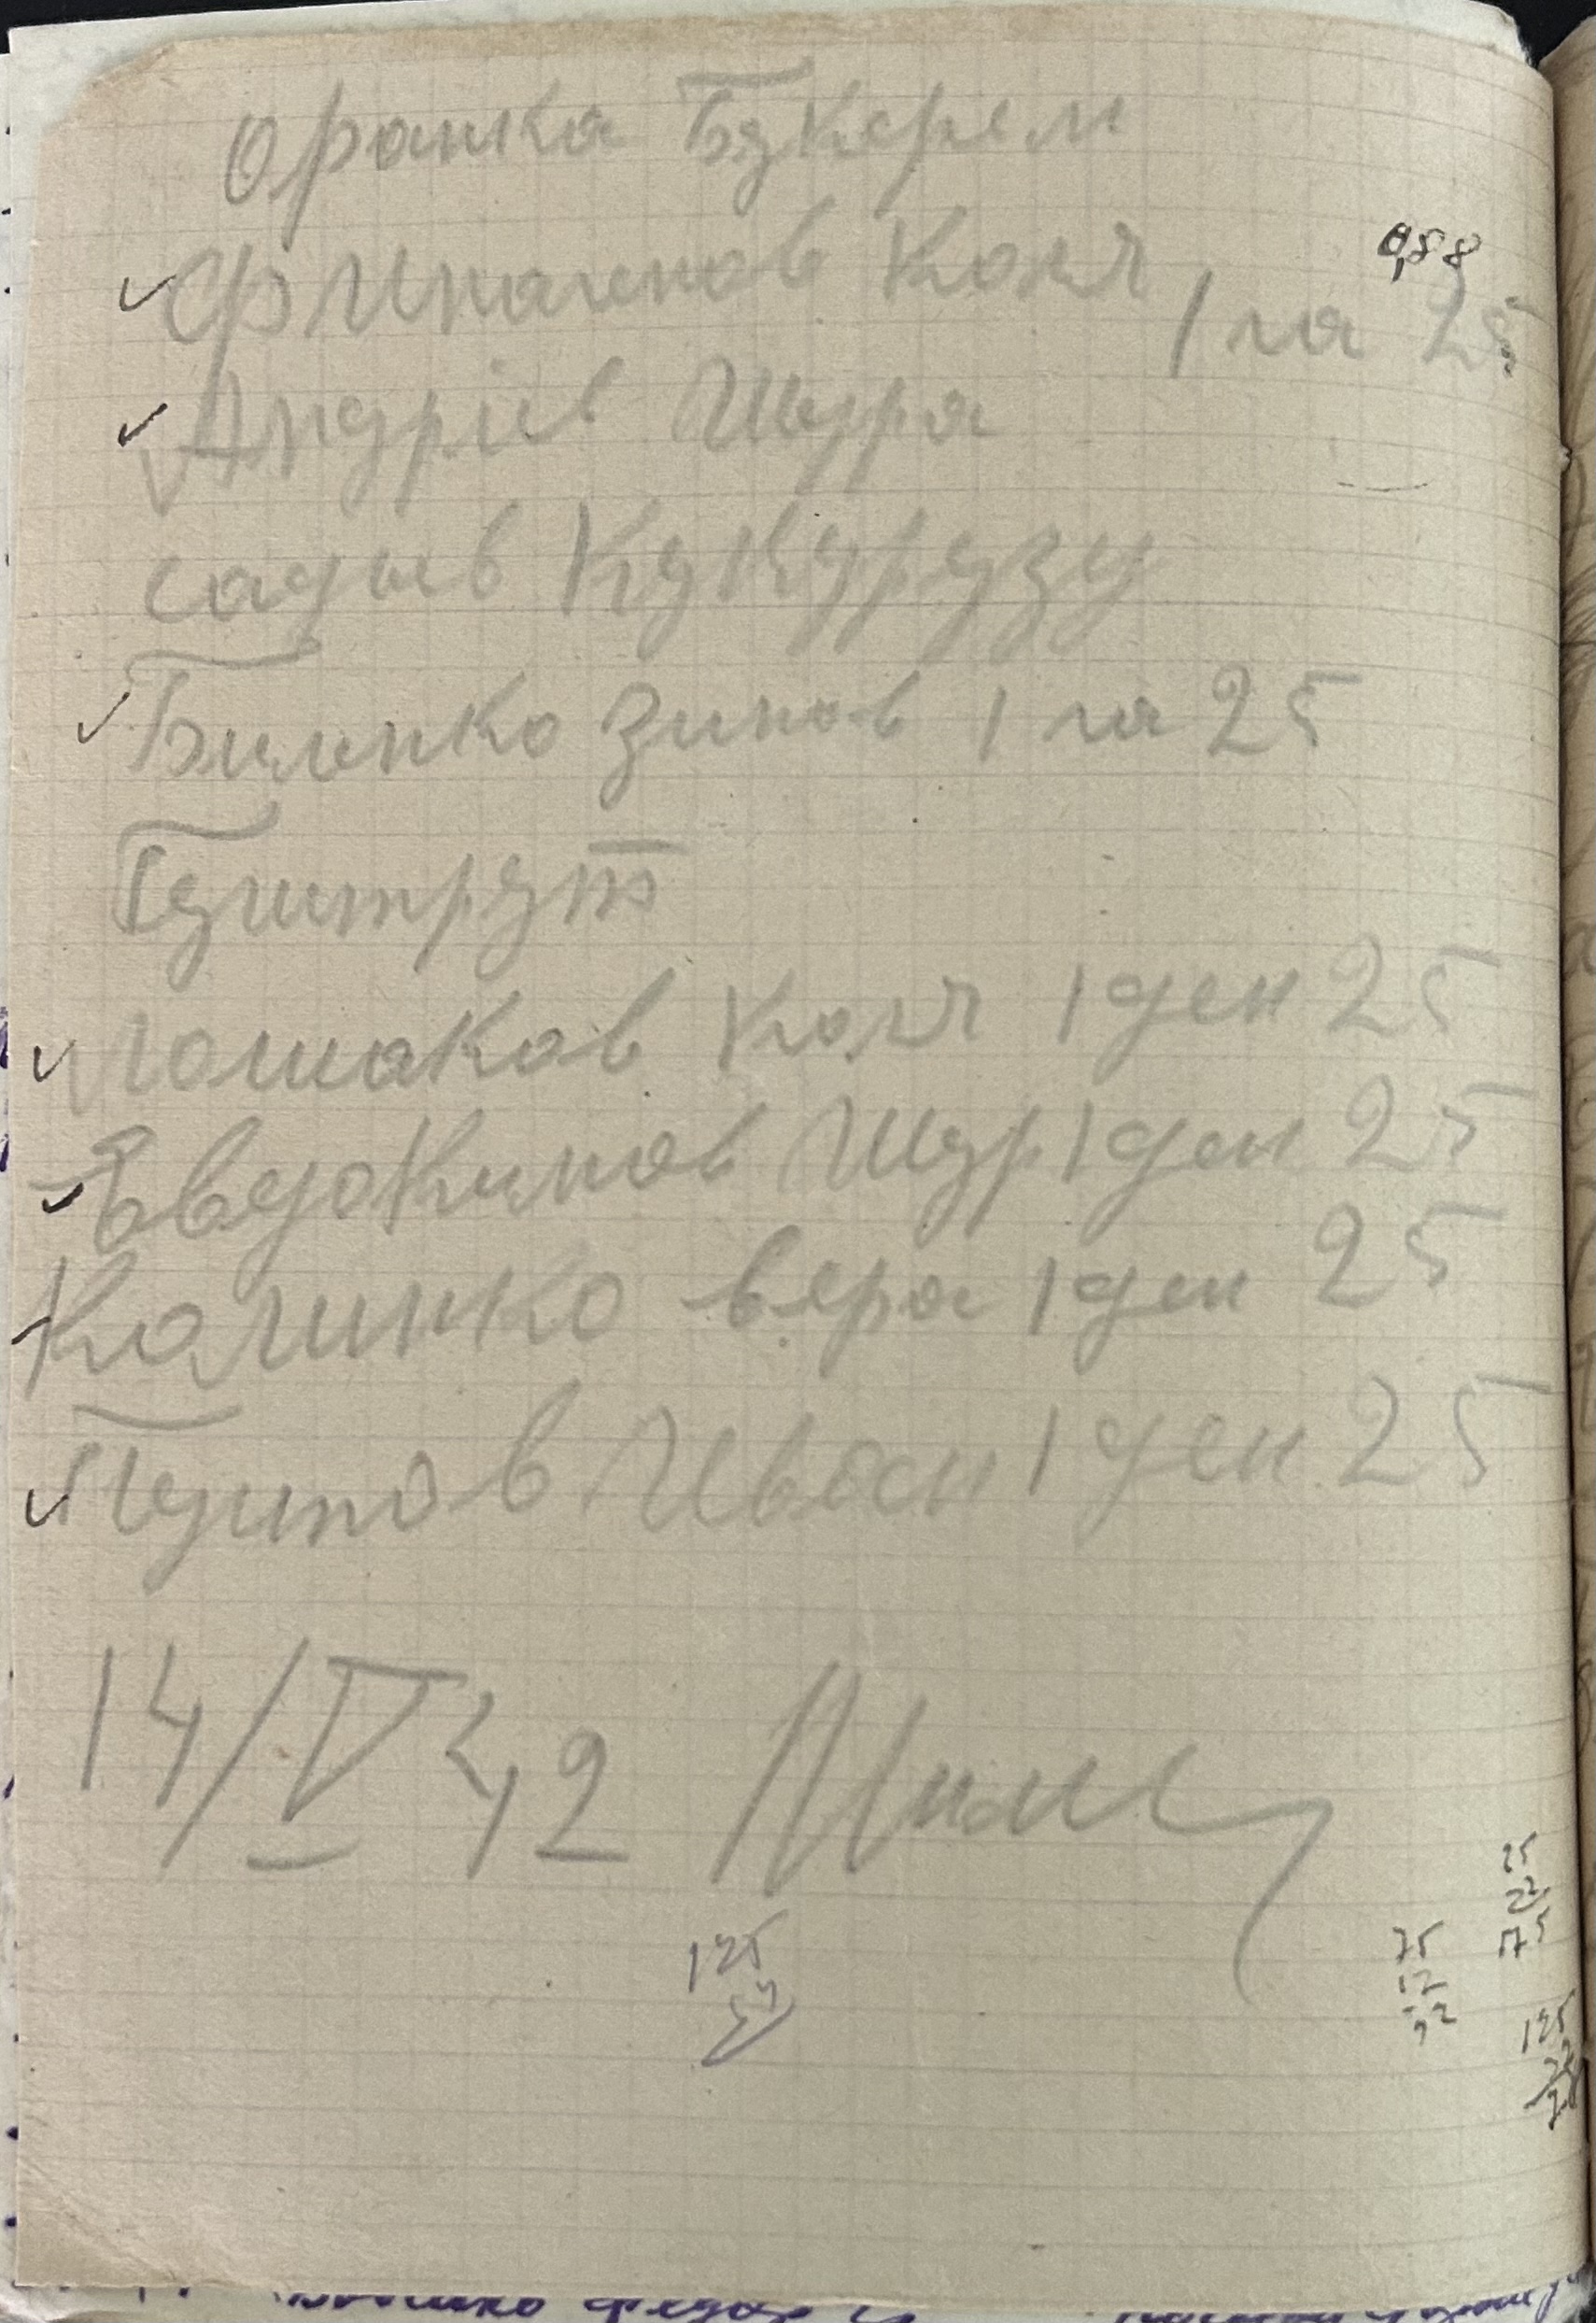 Оранка Букером
0,88
Филипенов Коля 1 га 25
Андріів Шура
садыв Кукурузу
Биленко Зинов 1 га 25
Гуштрут
Лошаков Коля 1 ден 25
Евдокимов Шур 1 ден 25
Калинко вера 1 ден 25
Пупов Иван 1 ден 25
14/V 42
125
25
75
12
125